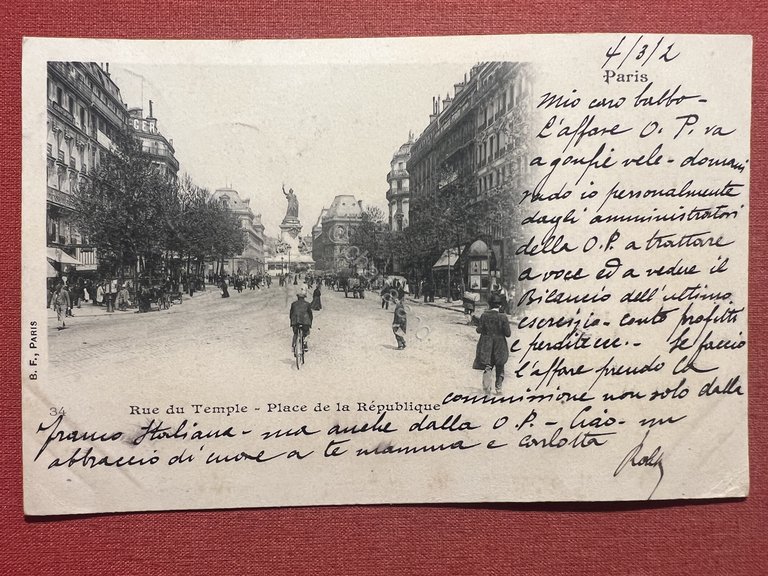 4/3/2
Paris
Mio caro babbo-
L'affare O. P. va
a gonfie vele - domani
vado io personalmente
dagli amministratori
della O.P. a trattare
a voce ed a vedere il
Bilancio dell'ultimo
esercizio - conto profitti
e perdite ecc. - Se faccio
l'affare prendo la
commissione non solo dalla
franco Italiana - ma anche dalla O.P. - Ciao - un
abbraccio di cuore a te mamma e Carlotta
34 Rue du Temple - Place de la République
B. F., PARIS